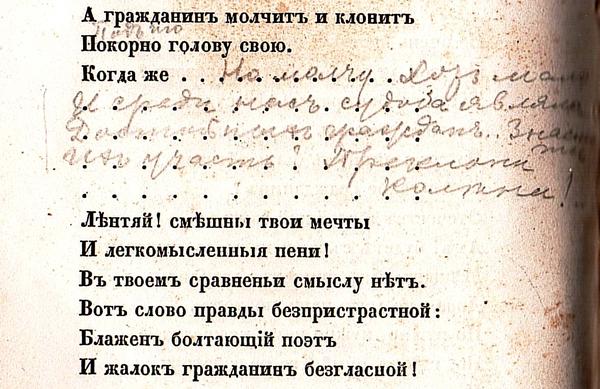 А гражданинъ молчитъ и клонитъ
Подъ иго
Покорно голову свою.
Когда же . . Но молчу. Хоть мало
И среди насъ судьба являла
Достойныхъ гражданъ.. Знаешь ты
ихъ участь? Преклони
колѣни!
Лѣнтяй! смѣшны твои мечты
И легкомысленныя пени!
Въ твоемъ сравненьи смыслу нѣтъ.
Вотъ слово правды безпристрастной:
Блаженъ болтающій поэтъ
И жалокъ гражданинъ безгласной!